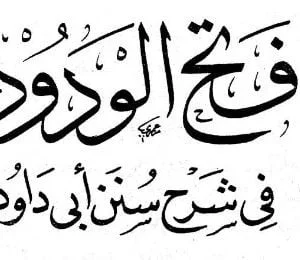 فتح الْوَدُود
في شَرْح سُنَن أبي دَاوُد